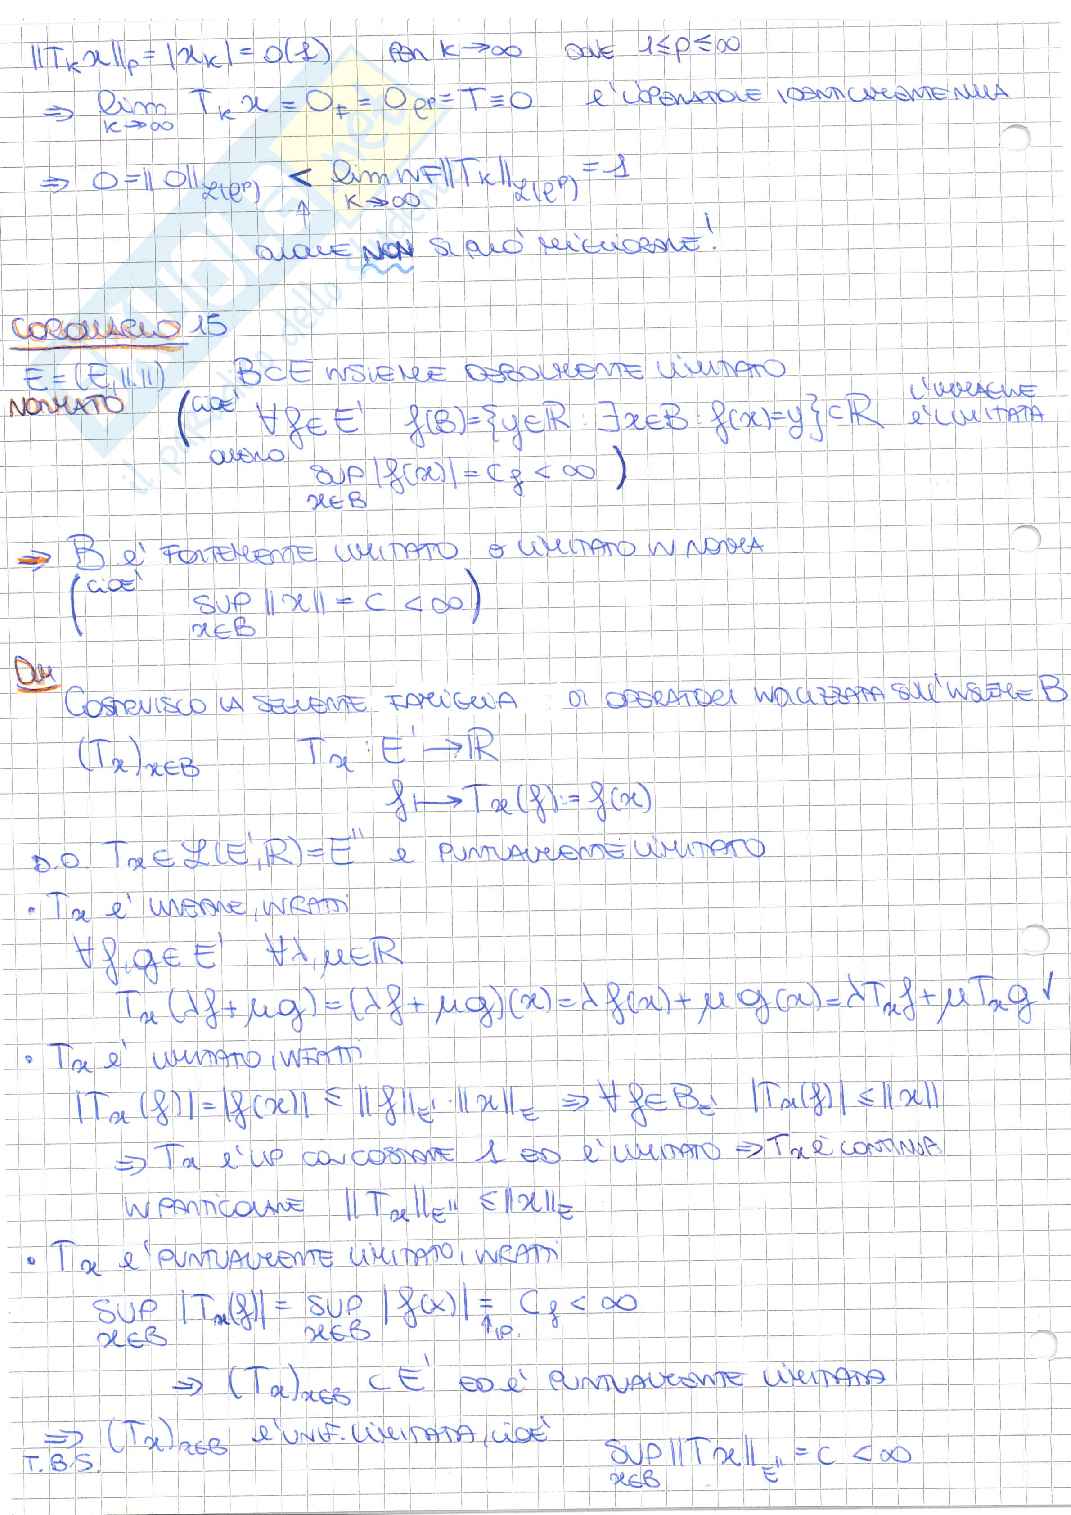 ||T_k x||_p = |x_k| = o(1) PER k→∞ DOVE 1≤p≤∞
⇒ lim_{k→∞} T_k x = 0_F = 0_{ℓ^p} = T≡0 È L'OPERATORE IDENTICAMENTE NULLA
⇒ 0=||0||_{ℒ(ℓ^p)} < lim INF_{k→∞} ||T_k||_{ℒ(ℓ^p)} = 1
↑
QUALE NON SI PUÒ MIGLIORARE!
COROLLARIO 15
E=(E,||.||) B⊂E INSIEME DEBOLMENTE LIMITATO
NORMATO
(CIOÈ ∀f∈E' f(B)={y∈ℝ : ∃x∈B : f(x)=y}⊂ℝ L'IMMAGINE È LIMITATA
OVVERO
SUP_{x∈B} |f(x)| = C_f < ∞)
⇒ B È FORTEMENTE LIMITATO O LIMITATO IN NORMA
(CIOÈ SUP_{x∈B} ||x|| = C < ∞)
DIM
COSTRUISCO LA SEGUENTE FAMIGLIA DI OPERATORI INDICIZZATA SULL'INSIEME B
(T_x)_{x∈B} T_x : E' → ℝ
f ↦ T_x(f) := f(x)
D.O. T_x ∈ ℒ(E',ℝ)=E'' E PUNTUALMENTE LIMITATO
• T_x È LINEARE, INFATTI
∀f,g∈E' ∀λ,μ∈ℝ
T_x(λf+μg)=(λf+μg)(x)=λf(x)+μg(x)=λT_x f+μT_x g ✓
• T_x È LIMITATO, INFATTI
|T_x(f)|=|f(x)| ≤ ||f||_{E'}·||x||_E ⇒ ∀f∈B_{E'} |T_x(f)| ≤ ||x||
⇒ T_x È LIP CON COSTANTE 1 ED È LIMITATO ⇒ T_x È CONTINUA
IN PARTICOLARE ||T_x||_{E''} ≤ ||x||_E
• T_x È PUNTUALMENTE LIMITATO, INFATTI
SUP_{x∈B} |T_x(f)| = SUP_{x∈B} |f(x)| = C_f < ∞
↑ IP.
⇒ (T_x)_{x∈B} ⊂ E' ED È PUNTUALMENTE LIMITATA
⇒ (T_x)_{x∈B} È UNIF. LIMITATA, CIOÈ
T.B.S. SUP_{x∈B} ||T_x||_{E''} = C < ∞